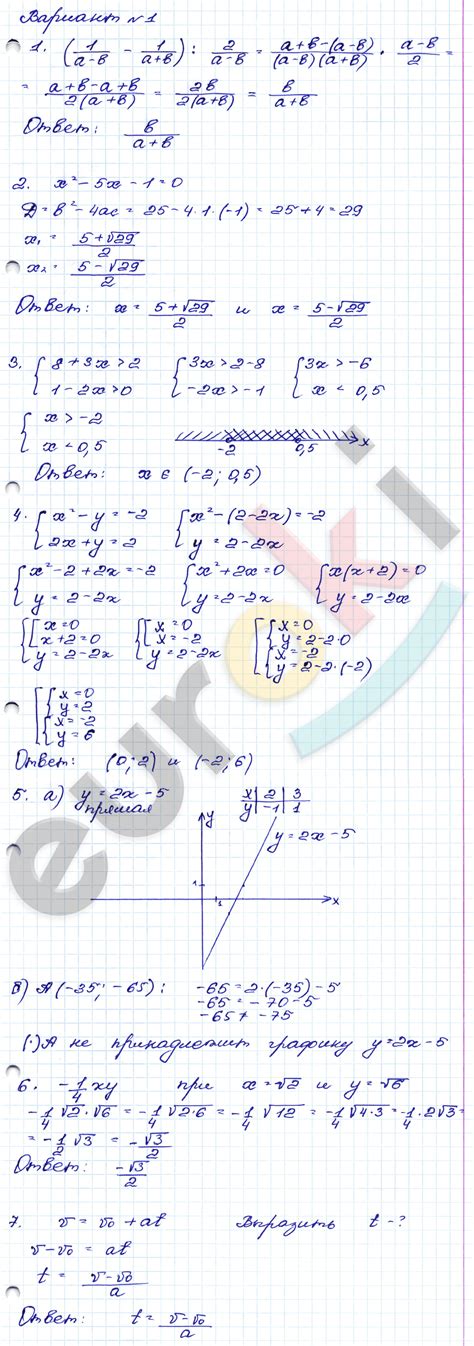 Вариант №1
1. (1/(a-в) - 1/(a+в)) : 2/(a-в) = (a+в-(a-в))/((a-в)(a+в)) · (a-в)/2 =
= (a+в-a+в)/(2(a+в)) = 2в/(2(a+в)) = в/(a+в)
Ответ: в/(a+в)
2. x² - 5x - 1 = 0
D = в² - 4ac = 25 - 4·1·(-1) = 25 + 4 = 29
x₁ = (5+√29)/2
x₂ = (5-√29)/2
Ответ: x = (5+√29)/2 и x = (5-√29)/2
3. { 8+3x>2 { 3x>2-8 { 3x>-6
1-2x>0 -2x>-1 x < 0,5
{ x > -2
x < 0,5 -2 0,5 x
Ответ: x ∈ (-2; 0,5)
4. { x² - y = -2 { x² - (2-2x) = -2
2x + y = 2 y = 2-2x
{ x² - 2 + 2x = -2 { x² + 2x = 0 { x(x+2) = 0
y = 2-2x y = 2-2x y = 2-2x
{ [ x=0 { [ x=0 [ { x=0
x+2=0 x=-2 y=2-2·0
y = 2-2x y = 2-2x { x=-2
y=2-2·(-2)
[ { x=0
y=2
{ x=-2
y=6
Ответ: (0; 2) и (-2; 6)
5. а) y = 2x - 5 x | 2 | 3
прямая y | -1 | 1
y
y = 2x - 5
1
1 x
в) A(-35; -65): -65 = 2·(-35) - 5
-65 = -70 - 5
-65 ≠ -75
(·)A не принадлежит графику y = 2x - 5
6. -1/4 xy при x = √2 и y = √6
-1/4 √2·√6 = -1/4 √(2·6) = -1/4 √12 = -1/4 √(4·3) = -1/4·2√3 =
= -1/2 √3 = -√3/2
Ответ: -√3/2
7. v = v₀ + at Выразить t - ?
v - v₀ = at
t = (v-v₀)/a
Ответ: t = (v-v₀)/a
euroki